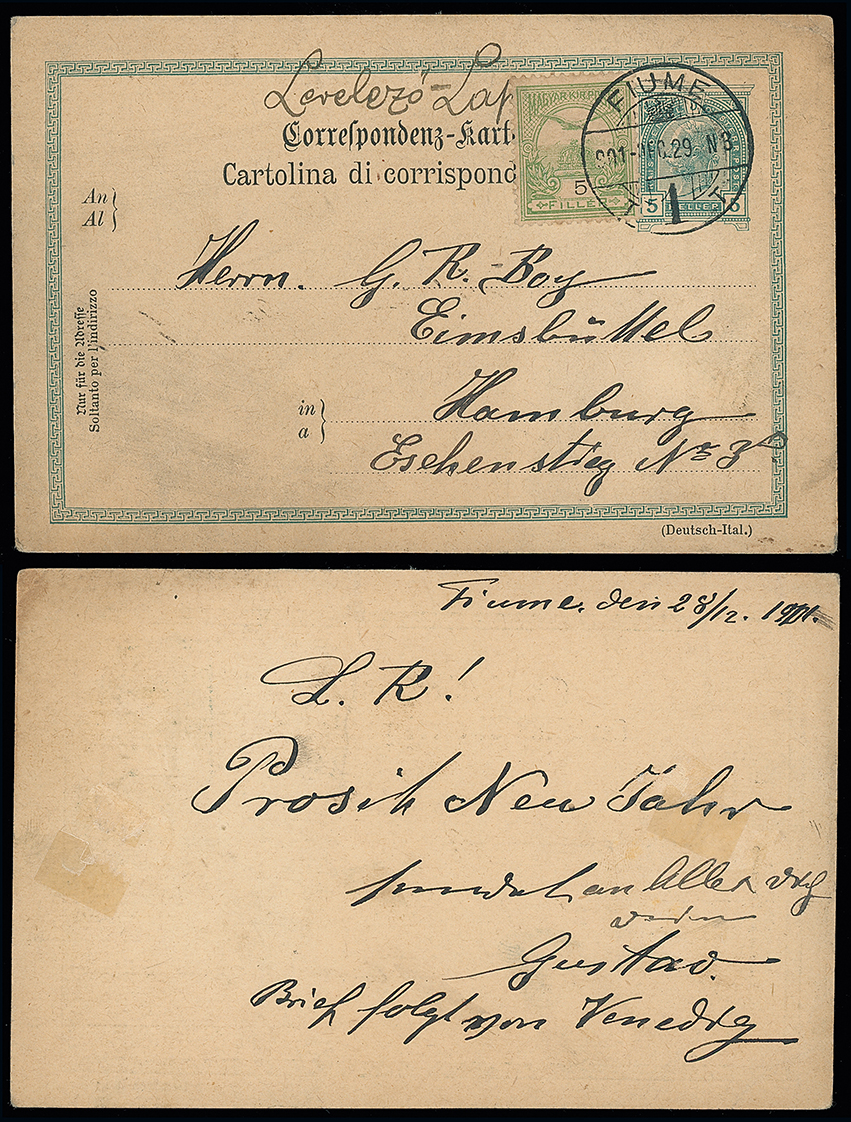 Levelező-Lap
Correspondenz-Kart
Cartolina di corrispond
MAGYAR KIR. POSTA
5
FILLÉR
FIUME
901-DEC. 29. N 3
1
5 HELLER 5
An
Al
Nur für die Adresse
Soltanto per l'indirizzo
Herrn. G. R. Boy
Eimsbüttel
in
a
Hamburg
Eschenstieg No 3
(Deutsch-Ital.)
Fiume, den 28/12. 1901.
L. R!
Prosit Neu Jahr
sendet an Alle
Gustav.
Brief folgt von Venedig